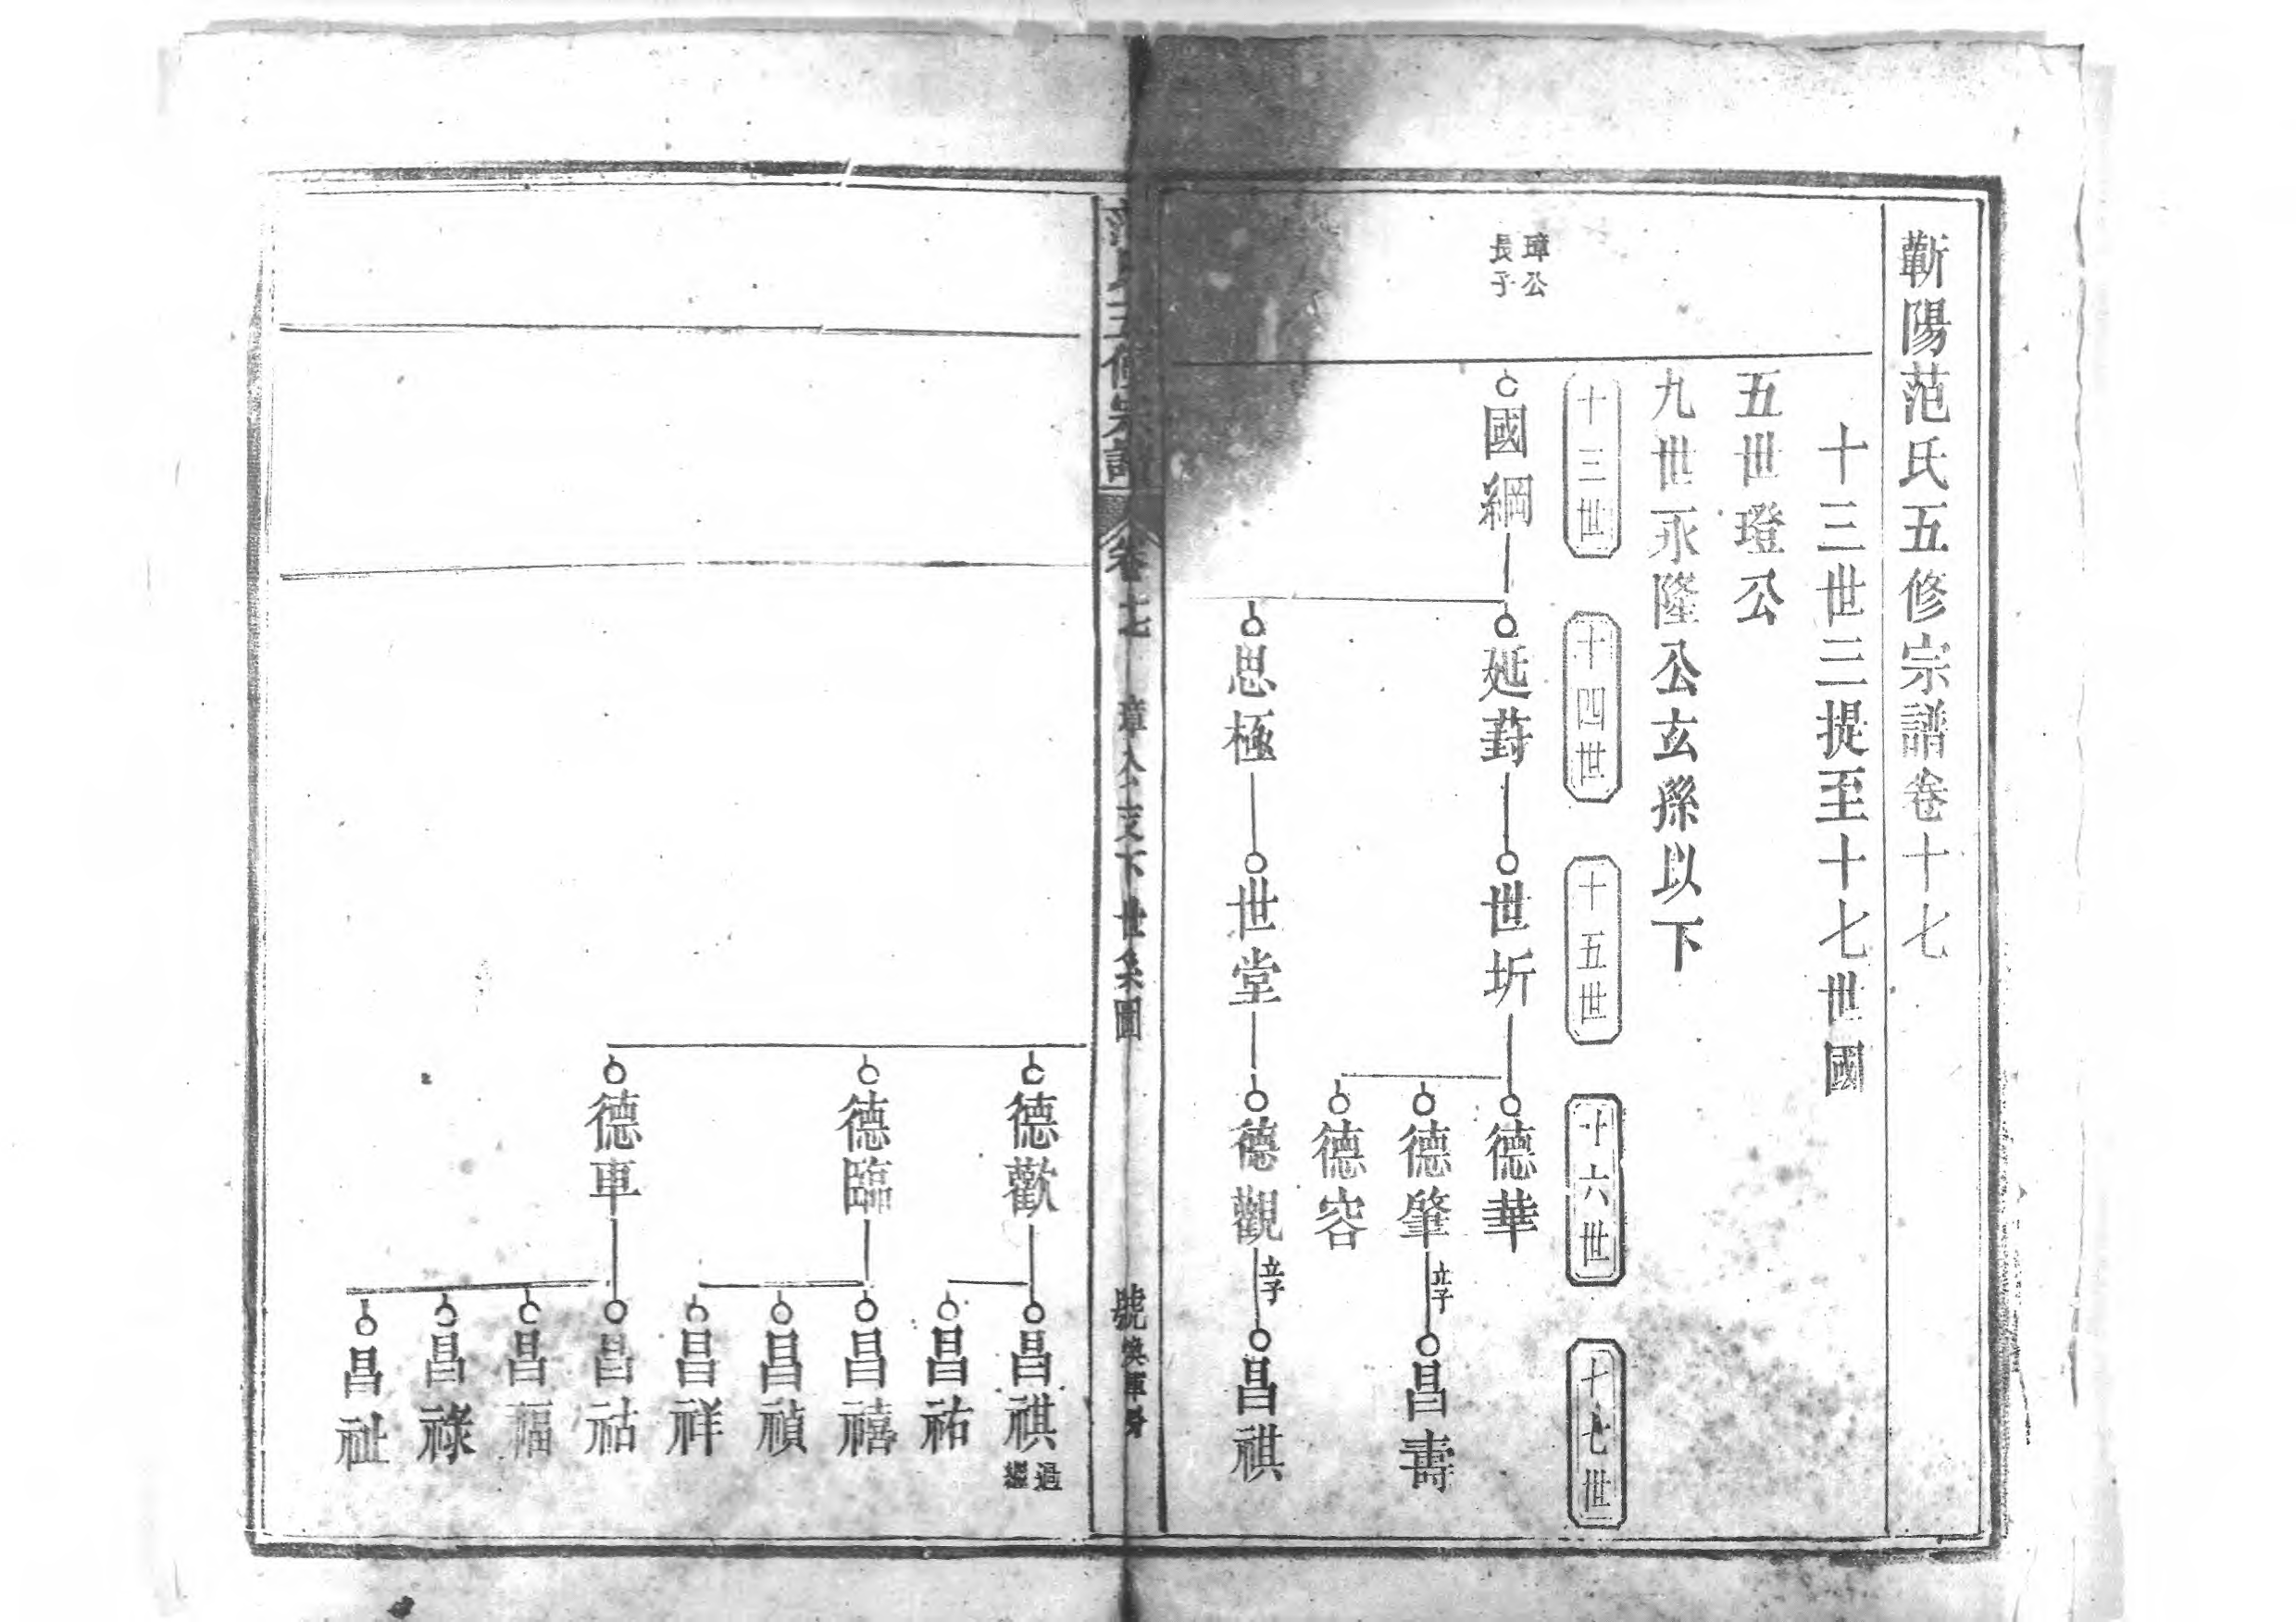 蘄陽范氏五修宗譜卷十七
十三世三提至十七世國
五世璒公
九世永隆公玄孫以下
十三世
十四世
十五世
十六世
十七世
璋公
長子
國綱
延葑
世圻
德華
德肇
立子
昌壽
德容
思極
世堂
德觀
立子
昌祺
五修宗譜
卷十七
璋公支下世系圖
號
德歡
昌祺
過
繼
昌祐
德臨
昌禧
昌禎
昌祥
德車
昌祜
昌福
昌祿
昌祉